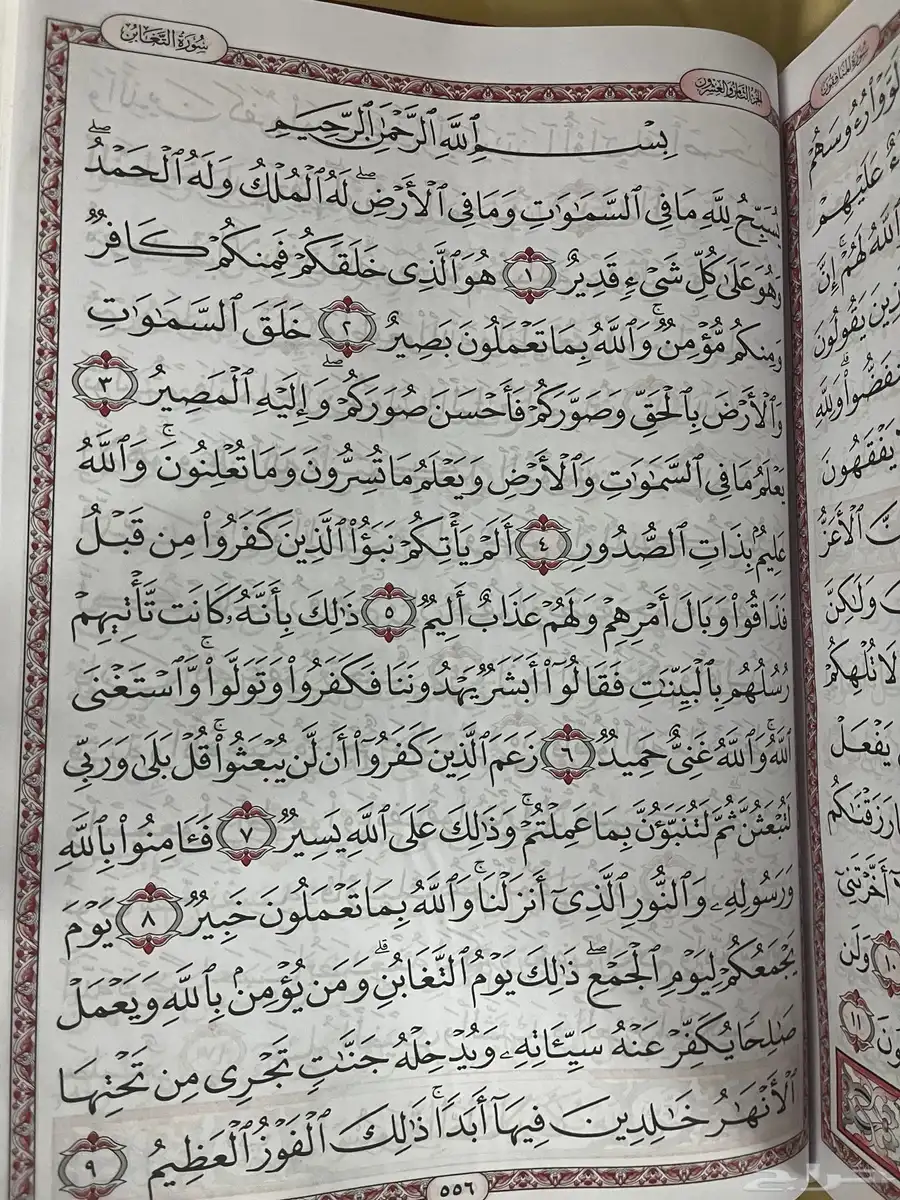 سُورَةُ التَّغَابُنِ
الجُزْءُ الثَّامِنُ وَالعِشْرُونَ
بِسْمِ ٱللَّهِ ٱلرَّحْمَٰنِ ٱلرَّحِيمِ
يُسَبِّحُ لِلَّهِ مَا فِى ٱلسَّمَٰوَٰتِ وَمَا فِى ٱلْأَرْضِۖ لَهُ ٱلْمُلْكُ وَلَهُ ٱلْحَمْدُۖ
وَهُوَ عَلَىٰ كُلِّ شَىْءٍ قَدِيرٌ ١ هُوَ ٱلَّذِى خَلَقَكُمْ فَمِنكُمْ كَافِرٌ
وَمِنكُم مُّؤْمِنٌۚ وَٱللَّهُ بِمَا تَعْمَلُونَ بَصِيرٌ ٢ خَلَقَ ٱلسَّمَٰوَٰتِ
وَٱلْأَرْضَ بِٱلْحَقِّ وَصَوَّرَكُمْ فَأَحْسَنَ صُوَرَكُمْۖ وَإِلَيْهِ ٱلْمَصِيرُ ٣
يَعْلَمُ مَا فِى ٱلسَّمَٰوَٰتِ وَٱلْأَرْضِ وَيَعْلَمُ مَا تُسِرُّونَ وَمَا تُعْلِنُونَۚ وَٱللَّهُ
عَلِيمٌۢ بِذَاتِ ٱلصُّدُورِ ٤ أَلَمْ يَأْتِكُمْ نَبَؤُا۟ ٱلَّذِينَ كَفَرُوا۟ مِن قَبْلُ
فَذَاقُوا۟ وَبَالَ أَمْرِهِمْ وَلَهُمْ عَذَابٌ أَلِيمٌ ٥ ذَٰلِكَ بِأَنَّهُۥ كَانَت تَّأْتِيهِمْ
رُسُلُهُم بِٱلْبَيِّنَٰتِ فَقَالُوٓا۟ أَبَشَرٌ يَهْدُونَنَا فَكَفَرُوا۟ وَتَوَلَّوا۟ۚ وَّٱسْتَغْنَى
ٱللَّهُۚ وَٱللَّهُ غَنِىٌّ حَمِيدٌ ٦ زَعَمَ ٱلَّذِينَ كَفَرُوٓا۟ أَن لَّن يُبْعَثُوا۟ۚ قُلْ بَلَىٰ وَرَبِّى
لَتُبْعَثُنَّ ثُمَّ لَتُنَبَّؤُنَّ بِمَا عَمِلْتُمْۚ وَذَٰلِكَ عَلَى ٱللَّهِ يَسِيرٌ ٧ فَـَٔامِنُوا۟ بِٱللَّهِ
وَرَسُولِهِۦ وَٱلنُّورِ ٱلَّذِىٓ أَنزَلْنَاۚ وَٱللَّهُ بِمَا تَعْمَلُونَ خَبِيرٌ ٨ يَوْمَ
يَجْمَعُكُمْ لِيَوْمِ ٱلْجَمْعِۖ ذَٰلِكَ يَوْمُ ٱلتَّغَابُنِۗ وَمَن يُؤْمِنۢ بِٱللَّهِ وَيَعْمَلْ
صَٰلِحًا يُكَفِّرْ عَنْهُ سَيِّـَٔاتِهِۦ وَيُدْخِلْهُ جَنَّٰتٍ تَجْرِى مِن تَحْتِهَا
ٱلْأَنْهَٰرُ خَٰلِدِينَ فِيهَآ أَبَدًاۚ ذَٰلِكَ ٱلْفَوْزُ ٱلْعَظِيمُ ٩
٥٥٦
سُورَةُ المُنَافِقُونَ
لَوَّوْا۟ رُءُوسَهُمْ
عَلَيْهِمْ
ٱللَّهُ لَهُمْۚ إِنَّ
يَقُولُونَ
وَلِلَّهِ
يَفْقَهُونَ
ٱلْأَعَزُّ
وَلَٰكِنَّ
لَا تُلْهِكُمْ
يَفْعَلْ
رَزَقْنَٰكُم
أَخَّرْتَنِىٓ
١٠ وَلَن
١١
حراج